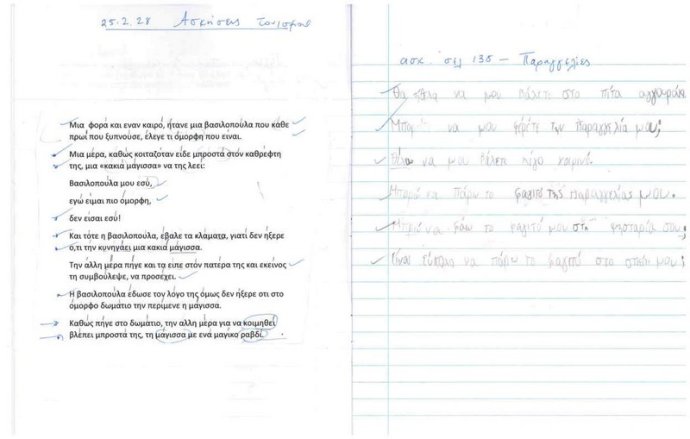 25.2.28 Ασκήσεις τονισμού
Μια φορά και εναν καιρό, ήτανε μια βασιλοπούλα που κάθε
πρωί που ξυπνούσε, έλεγε τι όμορφη που ειναι.
Μια μέρα, καθώς κοιταζοταν είδε μπροστά στον καθρέφτη
της, μια «κακιά μάγισσα» να της λεει:
Βασιλοπούλα μου εσύ,
εγώ ειμαι πιο όμορφη,
δεν εισαι εσύ!
Και τότε η βασιλοπούλα, εβαλε τα κλαματα, γιατί δεν ήξερε
ο,τι την κυνηγάει μια κακιά μάγισσα.
Την άλλη μέρα πήγε και τα ειπε στον πατέρα της και εκείνος
τη συμβούλεψε, να προσέχει.
Η βασιλοπούλα έδωσε τον λόγο της όμως δεν ήξερε οτι στο
όμορφο δωμάτιο την περίμενε η μάγισσα.
Καθώς πήγε στο δωμάτιο, την αλλη μέρα για να κοιμηθεί
βλέπει μπροστά της, τη μάγισσα με ενά μαγικό ραβδί.
ασκ. σελ 135 - Παραγγελίες
Θα ηθελα να μου βάλετε στο πίτα
Μπορ να μου φέρετε την παραγγελία μου;
Θέλω να μου βάλετε λίγο
Μπορώ να πάρω το φαγιτό της παραγγελίας μου.
Μπορώ να φάω το φαγιτό μου στη ψησταριά σου;
Είναι εύκολο να πάρω το φαγιτό στο σπίτι μου;